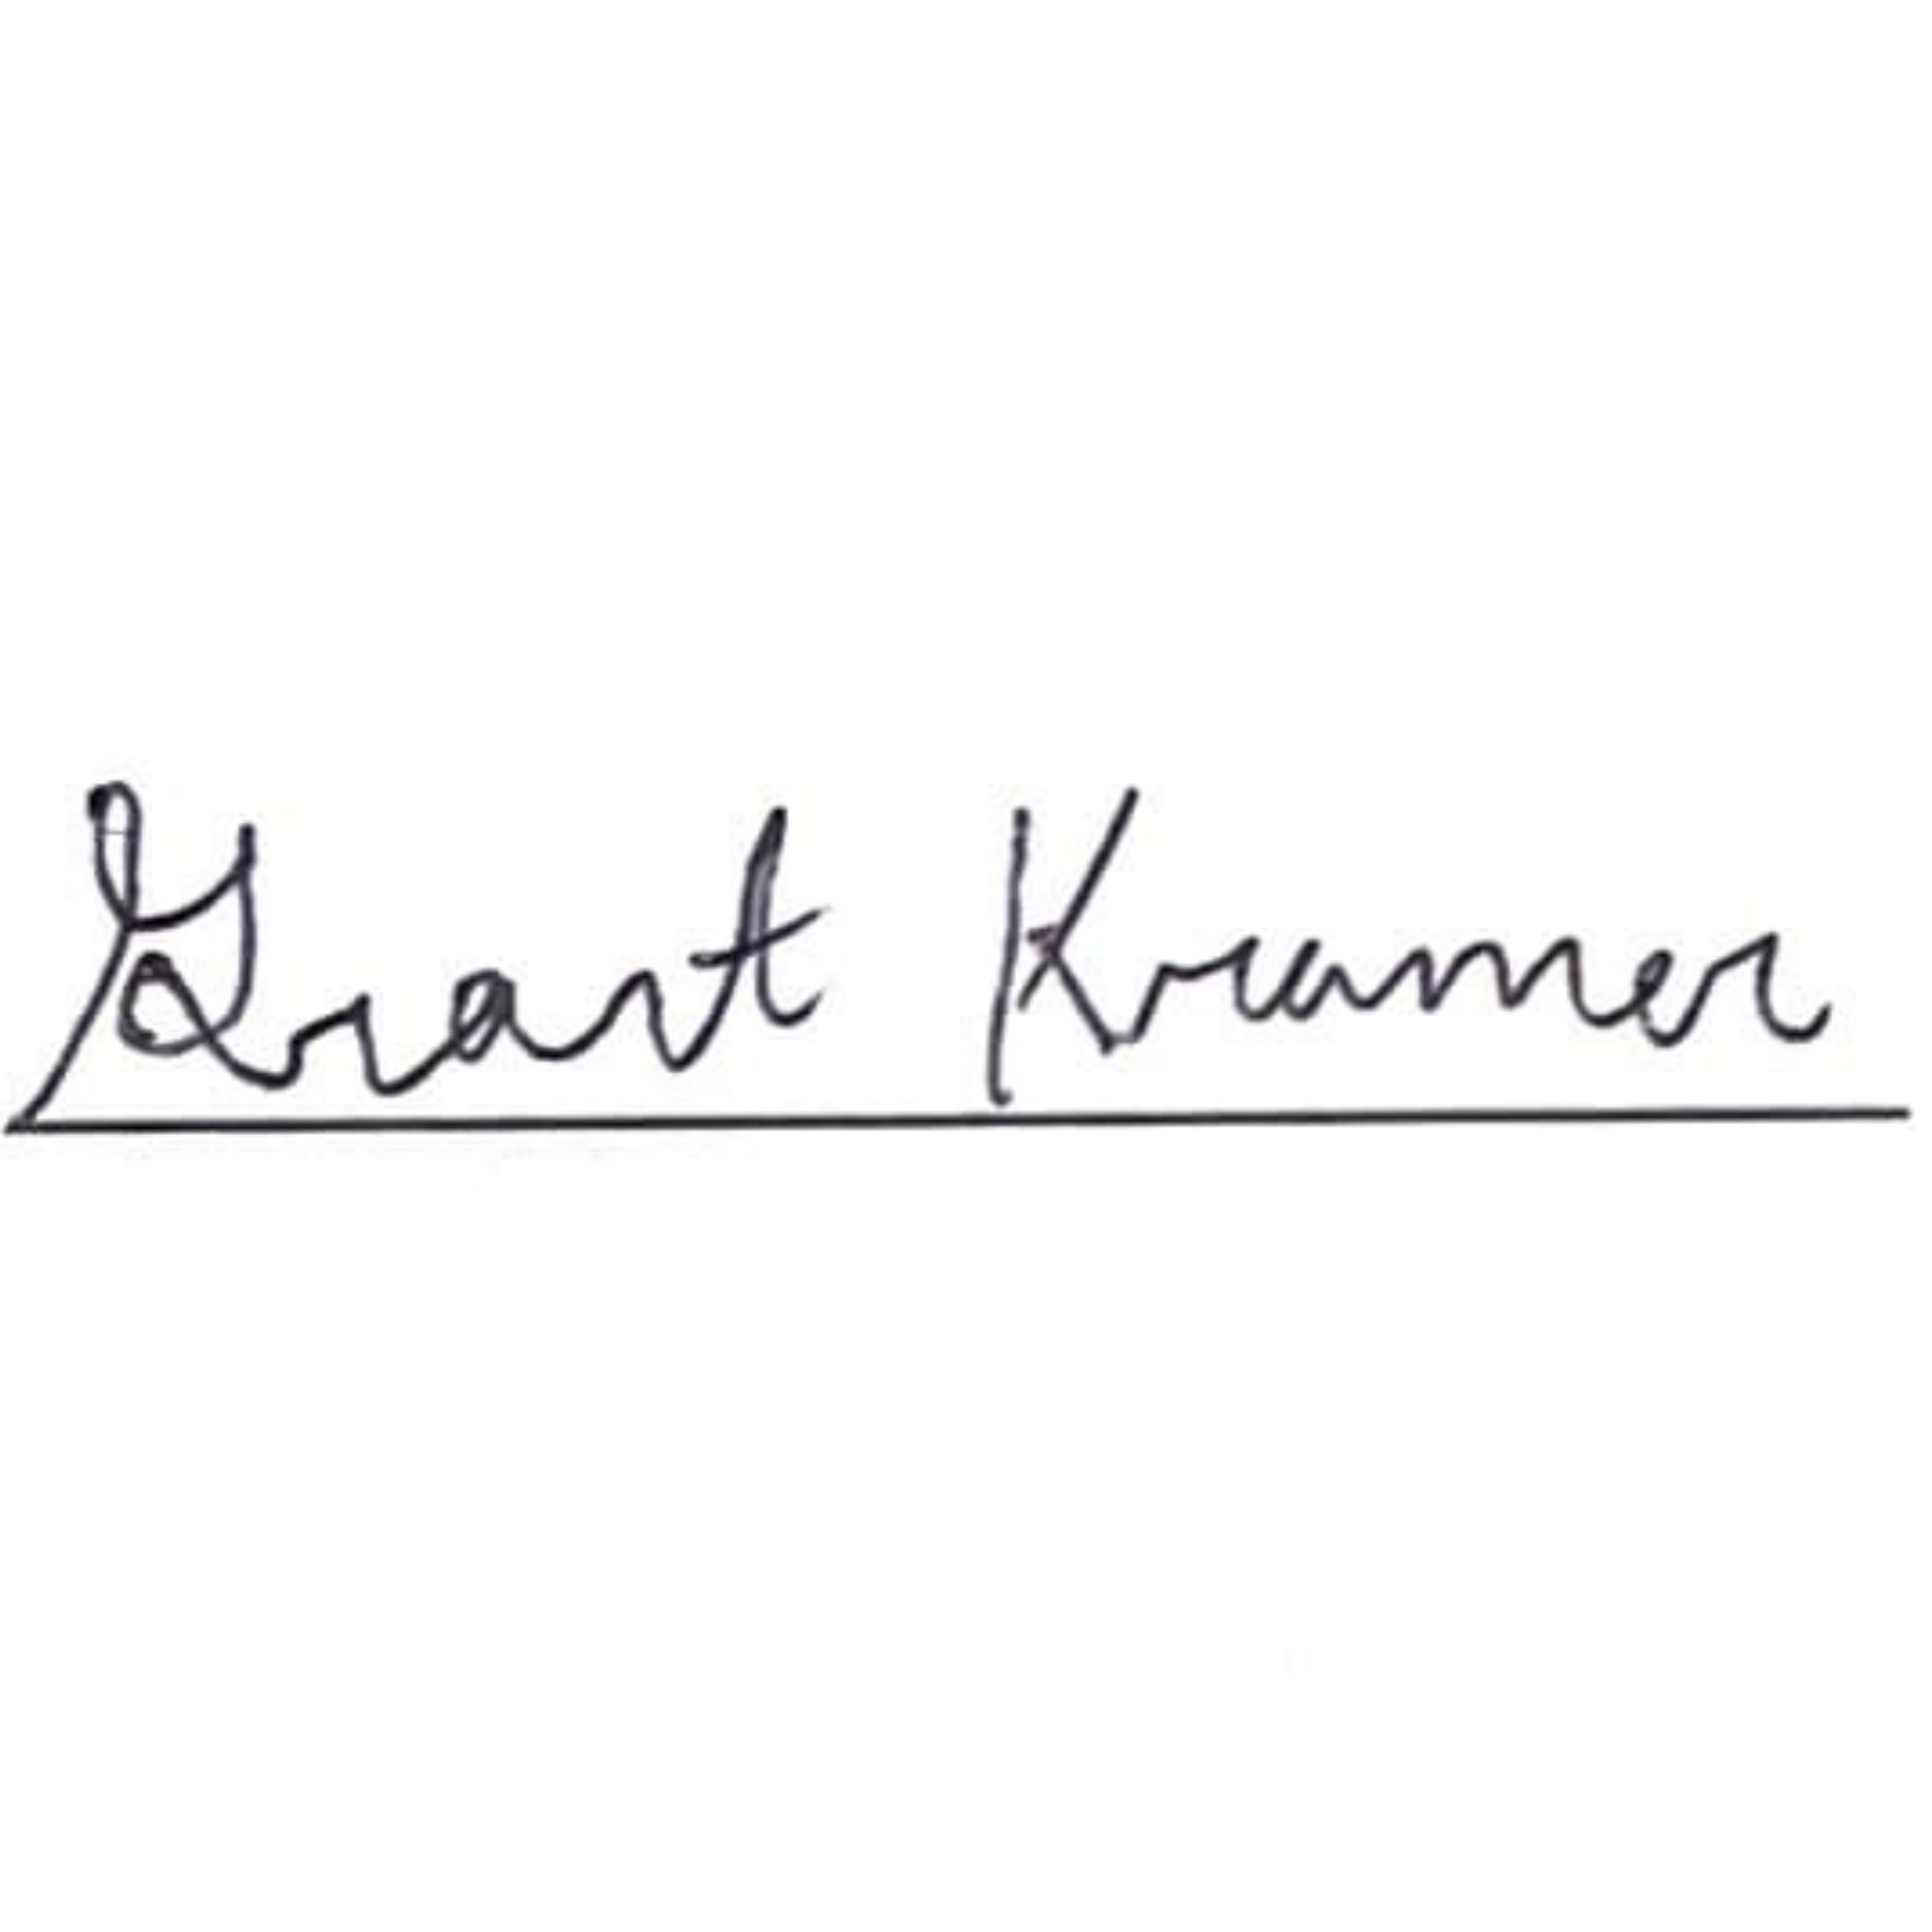 Grant Kramer